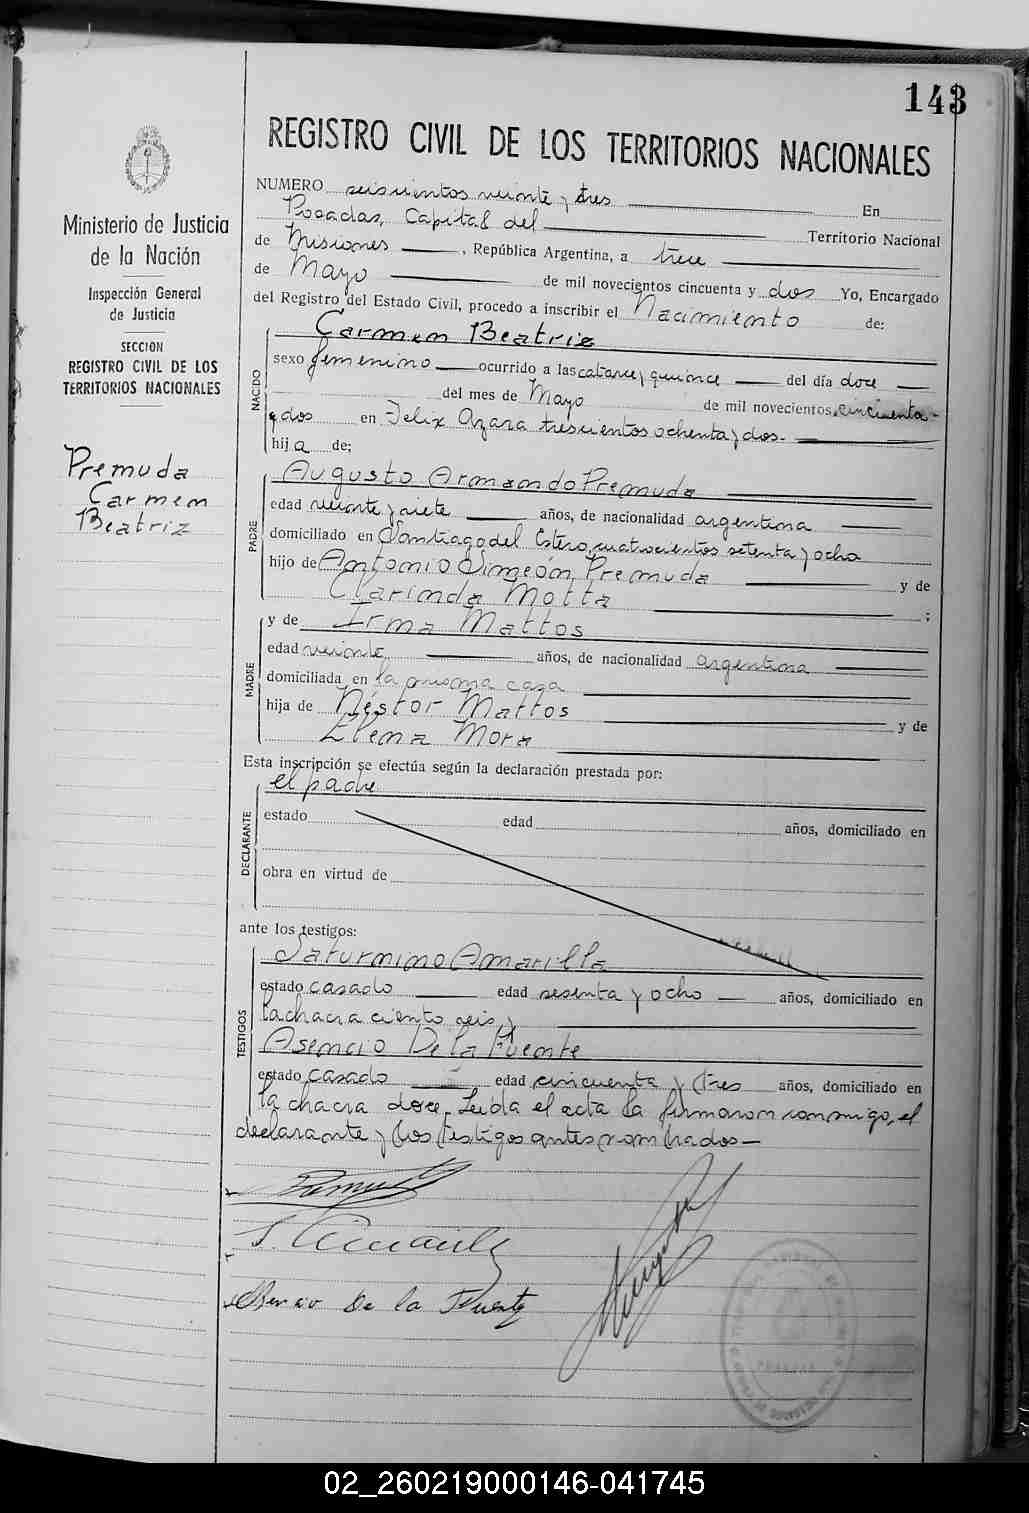 143
REGISTRO CIVIL DE LOS TERRITORIOS NACIONALES
Ministerio de Justicia
de la Nación
Inspección General
de Justicia
SECCION
REGISTRO CIVIL DE LOS
TERRITORIOS NACIONALES
Premuda
Carmen
Beatriz
NUMERO seiscientos veinte y tres En
Posadas, Capital del Territorio Nacional
de Misiones, República Argentina, a trece
de Mayo de mil novecientos cincuenta y dos Yo, Encargado
del Registro del Estado Civil, procedo a inscribir el Nacimiento de:
NACIDO
Carmen Beatriz
sexo femenino ocurrido a las catorce y quince del día doce
del mes de Mayo de mil novecientos cincuenta
y dos en Felix Azara trescientos ochenta y dos.
hija de;
PADRE
Augusto Armando Premuda
edad veinte y siete años, de nacionalidad argentina
domiciliado en Santiago del Estero, cuatrocientos setenta y ocho
hijo de Antonio Simeón Premuda y de
Clarinda Motta ;
MADRE
y de Irma Mattos
edad veinte años, de nacionalidad argentina
domiciliada en la misma casa
hija de Néstor Mattos y de
Elena Mora
Esta inscripción se efectúa según la declaración prestada por:
DECLARANTE
el padre
estado edad años, domiciliado en
obra en virtud de
ante los testigos:
TESTIGOS
Saturnino Amarilla
estado casado edad sesenta y ocho años, domiciliado en
la chacra ciento seis, y
Asencio De la Fuente
estado casado edad cincuenta y tres años, domiciliado en
la chacra doce. Leida el acta la firmaron conmigo, el
declarante y los testigos antes nombrados—
S. Amarilla
Asencio De la Fuente
POSADAS
02_260219000146-041745